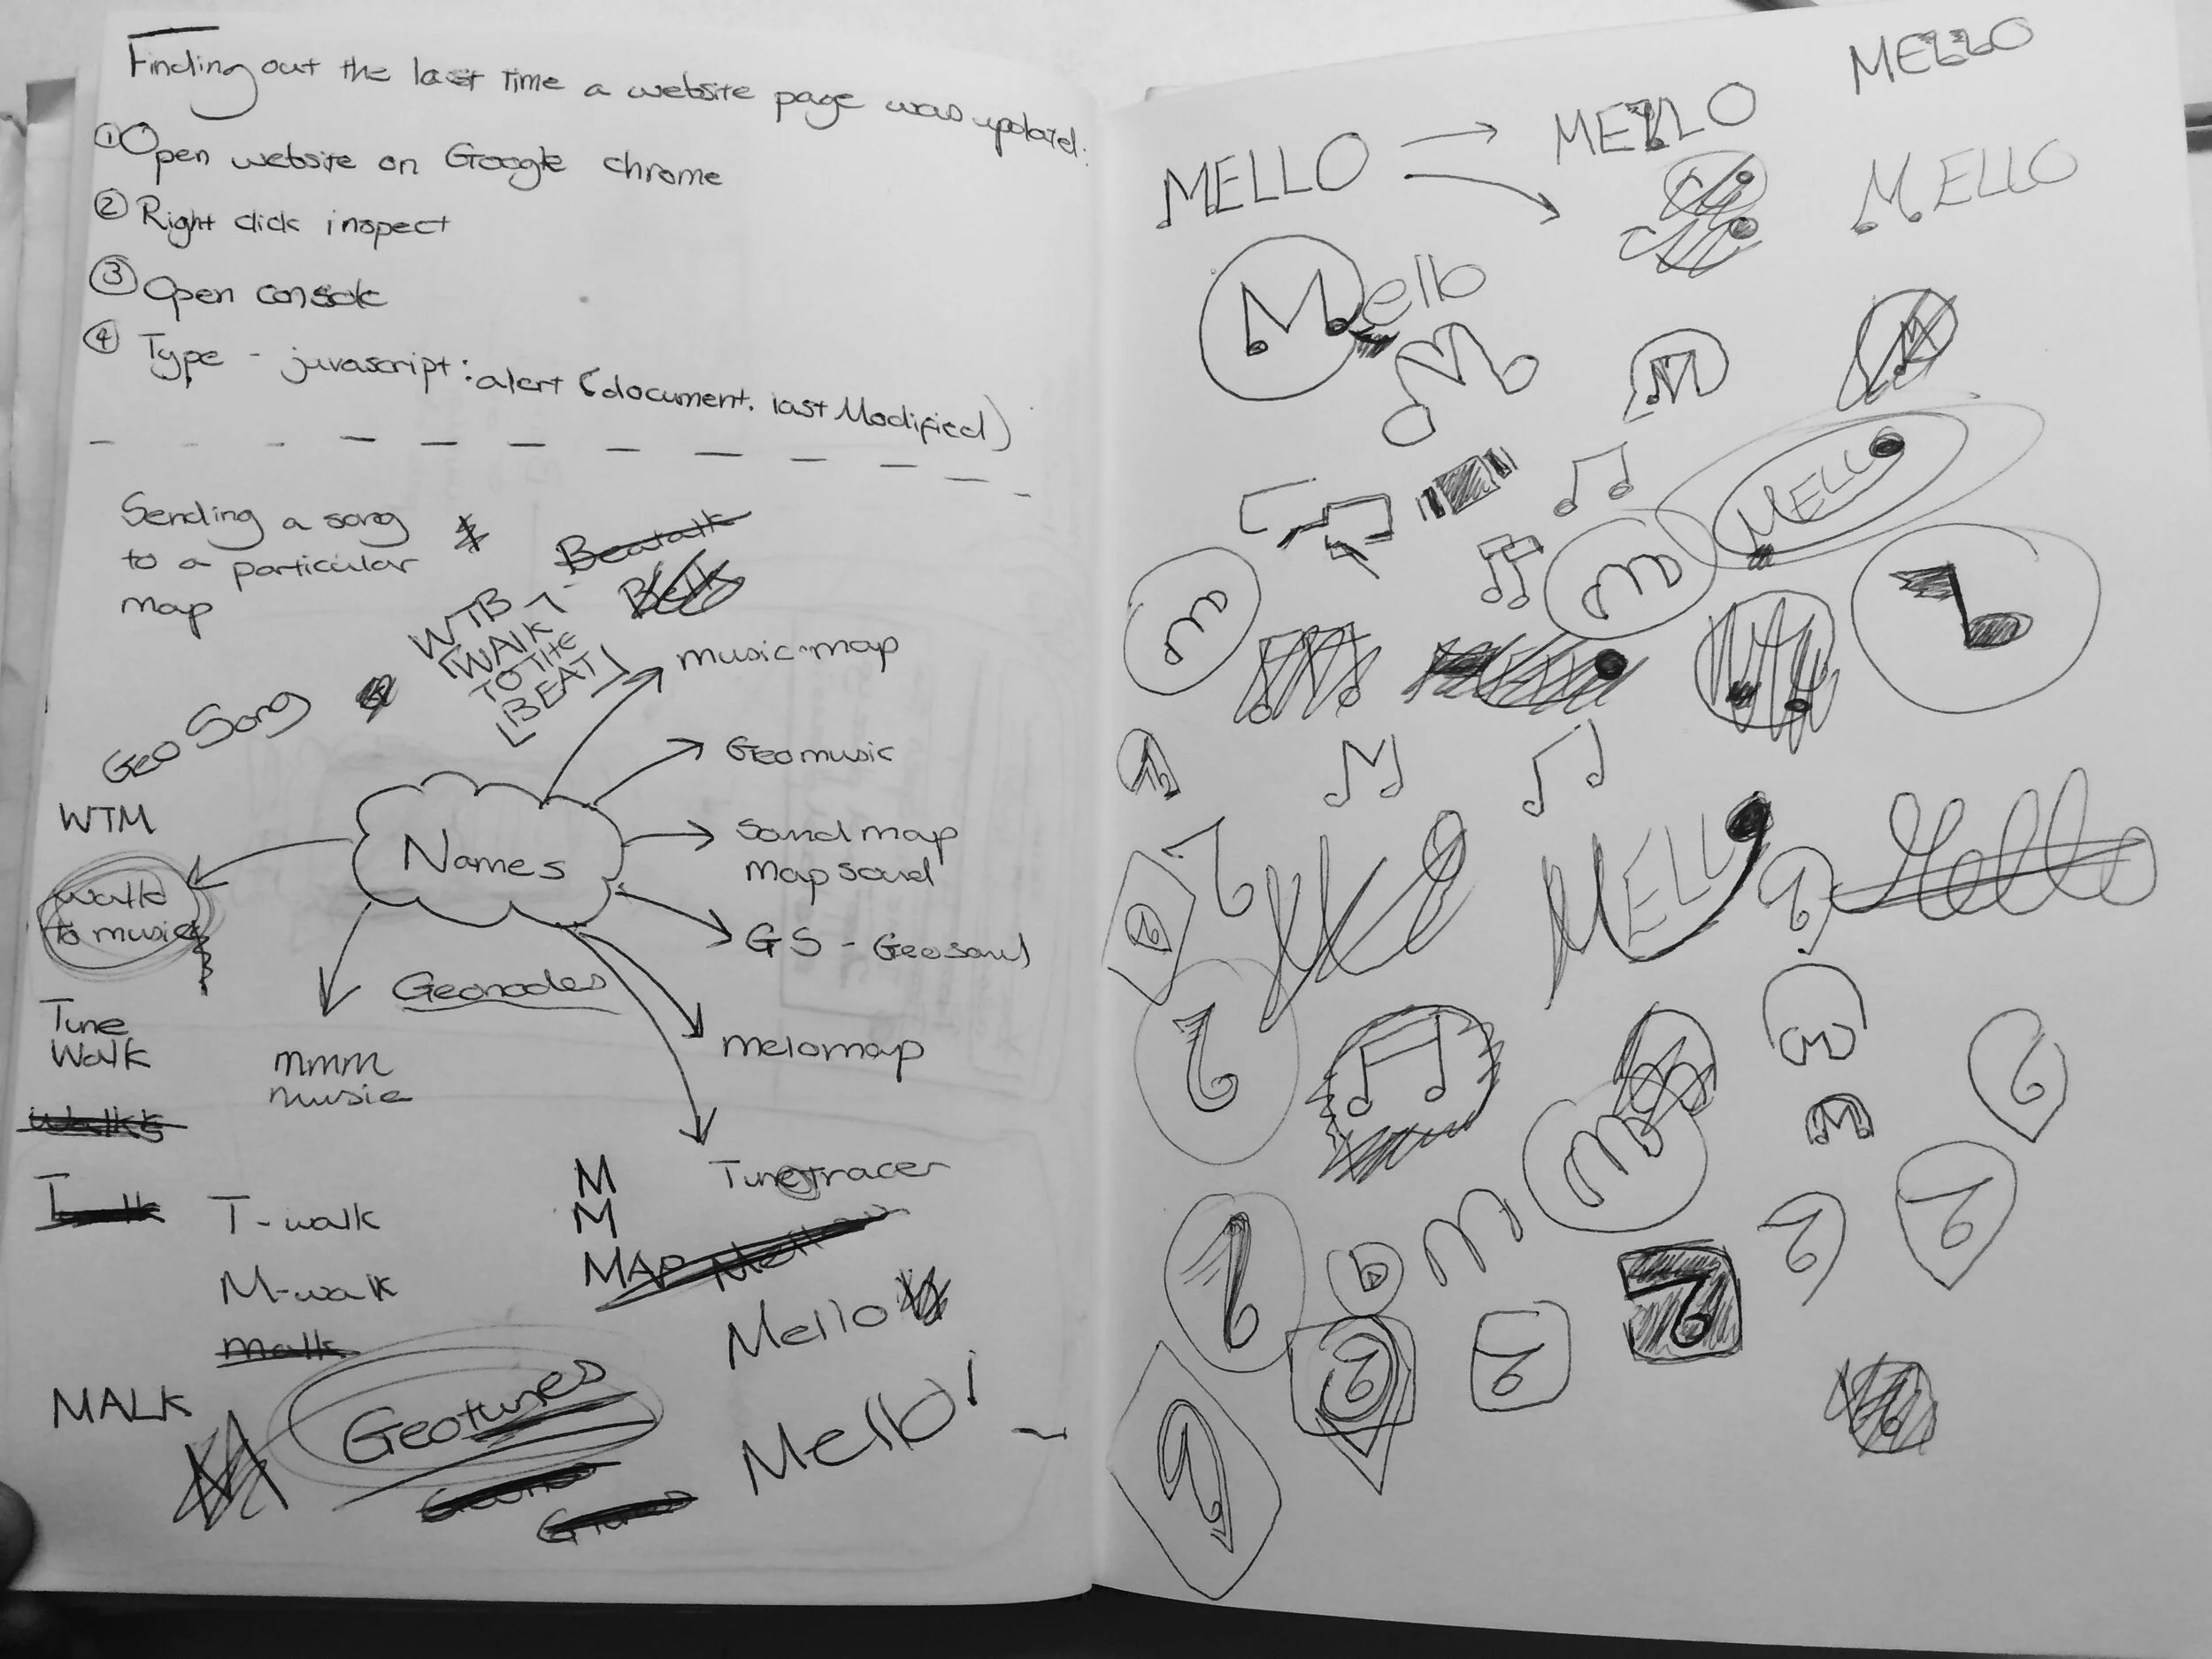 Finding out the last time a website page was updated:
① Open website on Google chrome
② Right click inspect
③ Open console
④ Type - javascript: alert (document. last Modified)
Sending a song
to a particular
map
Beatalk
WTB
[WALK
TO THE
BEAT]
music map
Geo Song
Geomusic
WTM
Names
Sound map
Map sound
walk
to music
GS - Geosound
Geonodes
Tune
Walk
mmm
music
melomap
Walks
Tunetracer
M
M
MAP
T-walk
M-walk
Mello
malk
MALK
Geotunes
Mello!
MELLO
MELLO
MELLO
MELLO
Mello
M
M
MELLO
m
m
M
MELLO
Mello
M
m
m